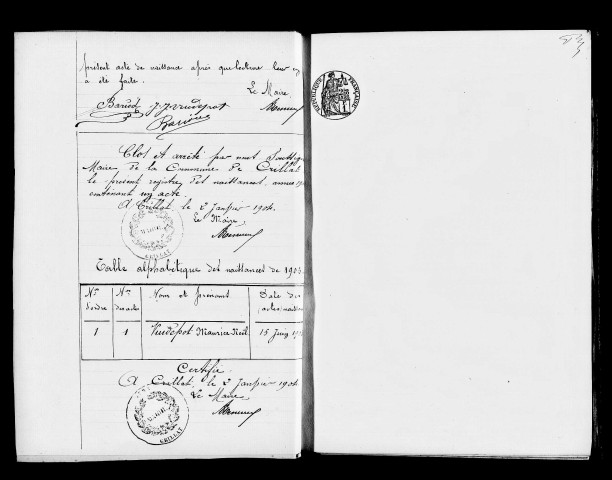 présent acte de naissance après que lecture leur en
a été faite.
Le Maire
Clos et arrêté par nous
Maire de la Commune de Crillat
le présent registre des naissances, année 19
contenant un acte.
A Crillat le 2 Janvier 1904.
Le Maire,
MAIRIE
CRILLAT
Table alphabétique des naissances de 1903.
Nos d'ordre
Nos des actes
Noms et prénoms
Date des actes naissan
1 1 Vuidepot Maurice 15 Juin 19
Certifié
A Crillat, le 2 Janvier 1904
Le Maire
MAIRIE
CRILLAT
RÉPUBLIQUE FRANÇAISE